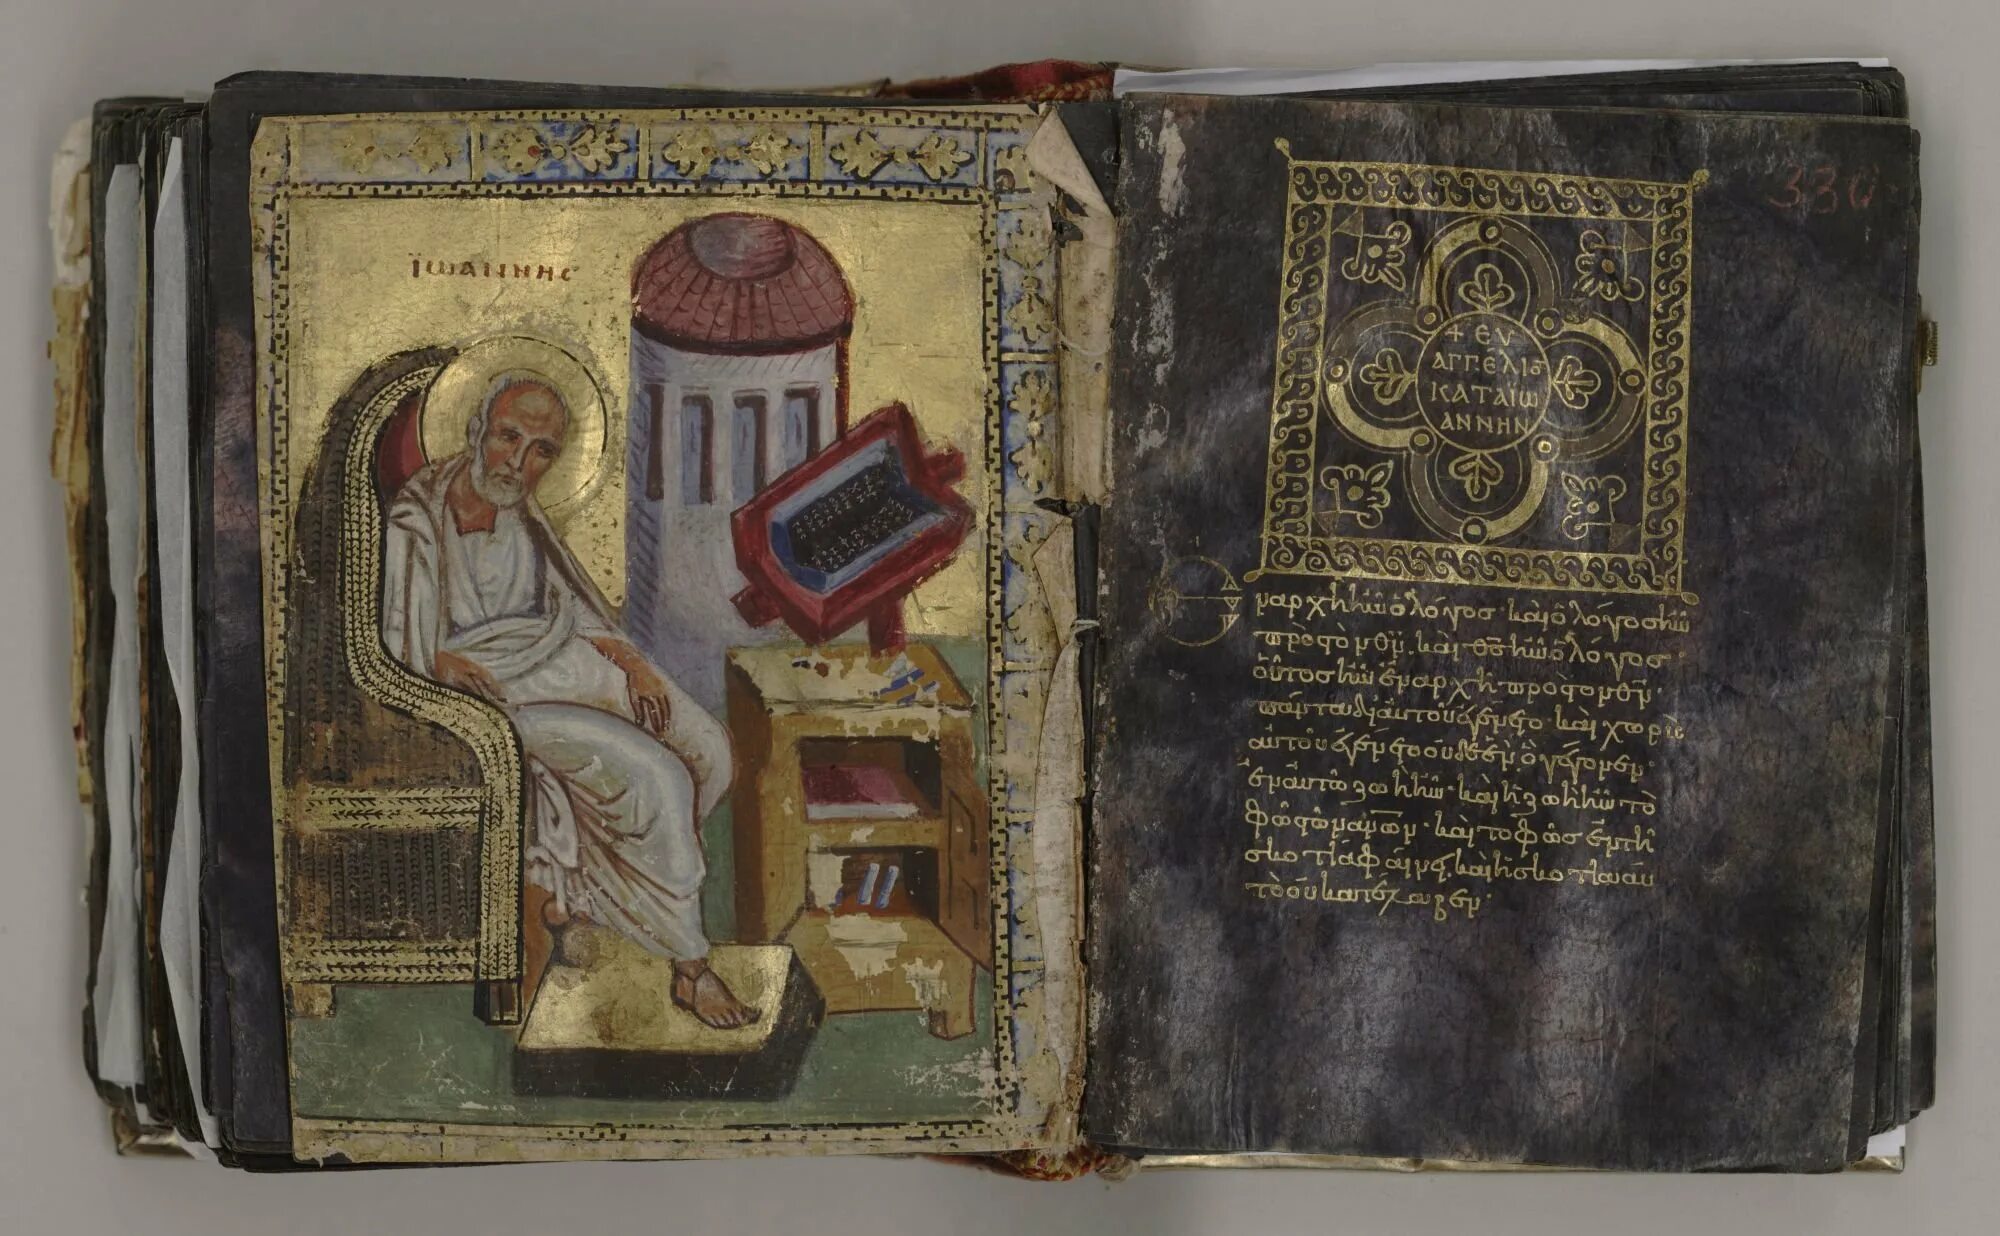 ἸΩΑΝΝΗΣ
330
+ ΕΥ
ΑΓΓΈΛΙΟ
ΚΑΤΑΙΩ
ΑΝΝΗΝ
Ἐν ἀρχῆ ἦν ὁ λόγος· καὶ ὁ λόγος ἦν
πρὸς τὸν θν̅· καὶ θς̅ ἦν ὁ λόγος·
οὗτος ἦν ἐν ἀρχῆ πρὸς τὸν θν̅·
πάντα δι αὐτοῦ ἐγένετο· καὶ χωρὶς
αὐτοῦ ἐγένετο οὐδὲ ἓν ὃ γέγονεν·
ἐν αὐτῶ ζωὴ ἦν· καὶ ἡ ζωὴ ἦν τὸ
φῶς τῶν ἀνων̅· καὶ τὸ φῶς ἐν τῆ
σκοτία φαίνει, καὶ ἡ σκοτία αὐ
τὸ οὐ κατέλαβεν·